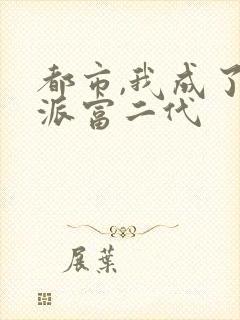 都市,我成了
派富二代
展葉